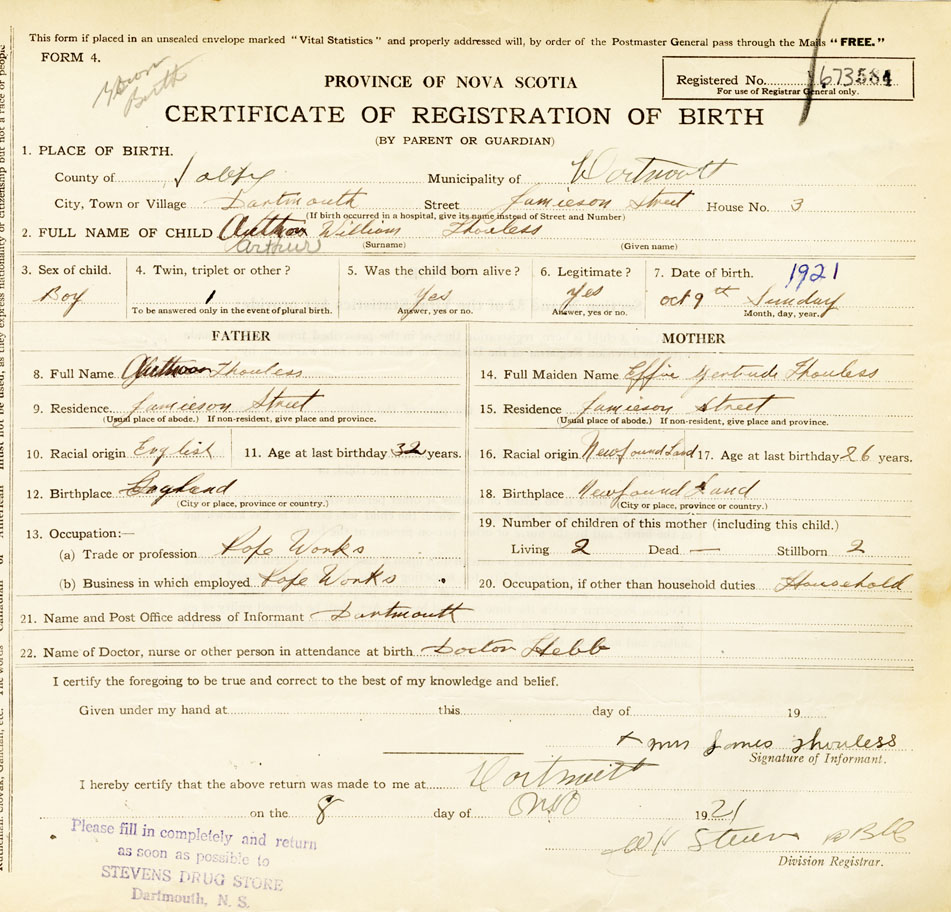 This form if placed in an unsealed envelope marked "Vital Statistics" and properly addressed will, by order of the Postmaster General pass through the Mails "FREE."
FORM 4.
Birth
PROVINCE OF NOVA SCOTIA
Registered No. 673584
For use of Registrar General only.
CERTIFICATE OF REGISTRATION OF BIRTH
(BY PARENT OR GUARDIAN)
1. PLACE OF BIRTH.
County of Municipality of Dartmouth
City, Town or Village Dartmouth Street Jamieson Street House No. 3
(If birth occurred in a hospital, give its name instead of Street and Number)
2. FULL NAME OF CHILD William Thouless
Arthur (Surname) (Given name)
3. Sex of child. 4. Twin, triplet or other? 5. Was the child born alive? 6. Legitimate? 7. Date of birth. 1921
Boy 1 Yes Yes Oct 9th Sunday
To be answered only in the event of plural birth. Answer, yes or no. Answer, yes or no. Month, day, year.
FATHER MOTHER
8. Full Name Thouless 14. Full Maiden Name Effie Gertrude Thouless
9. Residence Jamieson Street 15. Residence Jamieson Street
(Usual place of abode.) If non-resident, give place and province. (Usual place of abode.) If non-resident, give place and province.
10. Racial origin English 11. Age at last birthday 32 years. 16. Racial origin Newfound Land 17. Age at last birthday 26 years.
12. Birthplace England 18. Birthplace Newfound Land
(City or place, province or country.) (City or place, province or country.)
13. Occupation:— 19. Number of children of this mother (including this child.)
(a) Trade or profession Rope Works Living 2 Dead — Stillborn 2
(b) Business in which employed Rope Works 20. Occupation, if other than household duties Household
21. Name and Post Office address of Informant Dartmouth
22. Name of Doctor, nurse or other person in attendance at birth Doctor Hebb
I certify the foregoing to be true and correct to the best of my knowledge and belief.
Given under my hand at this day of 19
x Mrs James Thouless
Signature of Informant.
I hereby certify that the above return was made to me at Dartmouth
on the 8 day of 1921
Division Registrar.
Please fill in completely and return
as soon as possible to
STEVENS DRUG STORE
Dartmouth, N. S.